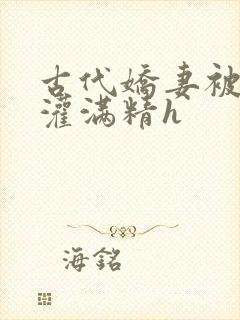 古代嬌妻被
灌滿精h
海銘